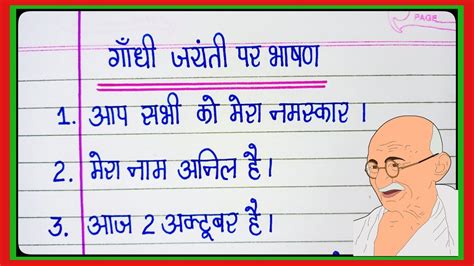 PAGE
गाँधी जयंती पर भाषण
1. आप सभी को मेरा नमस्कार ।
2. मेरा नाम अनिल है ।
3. आज 2 अक्टूबर है ।